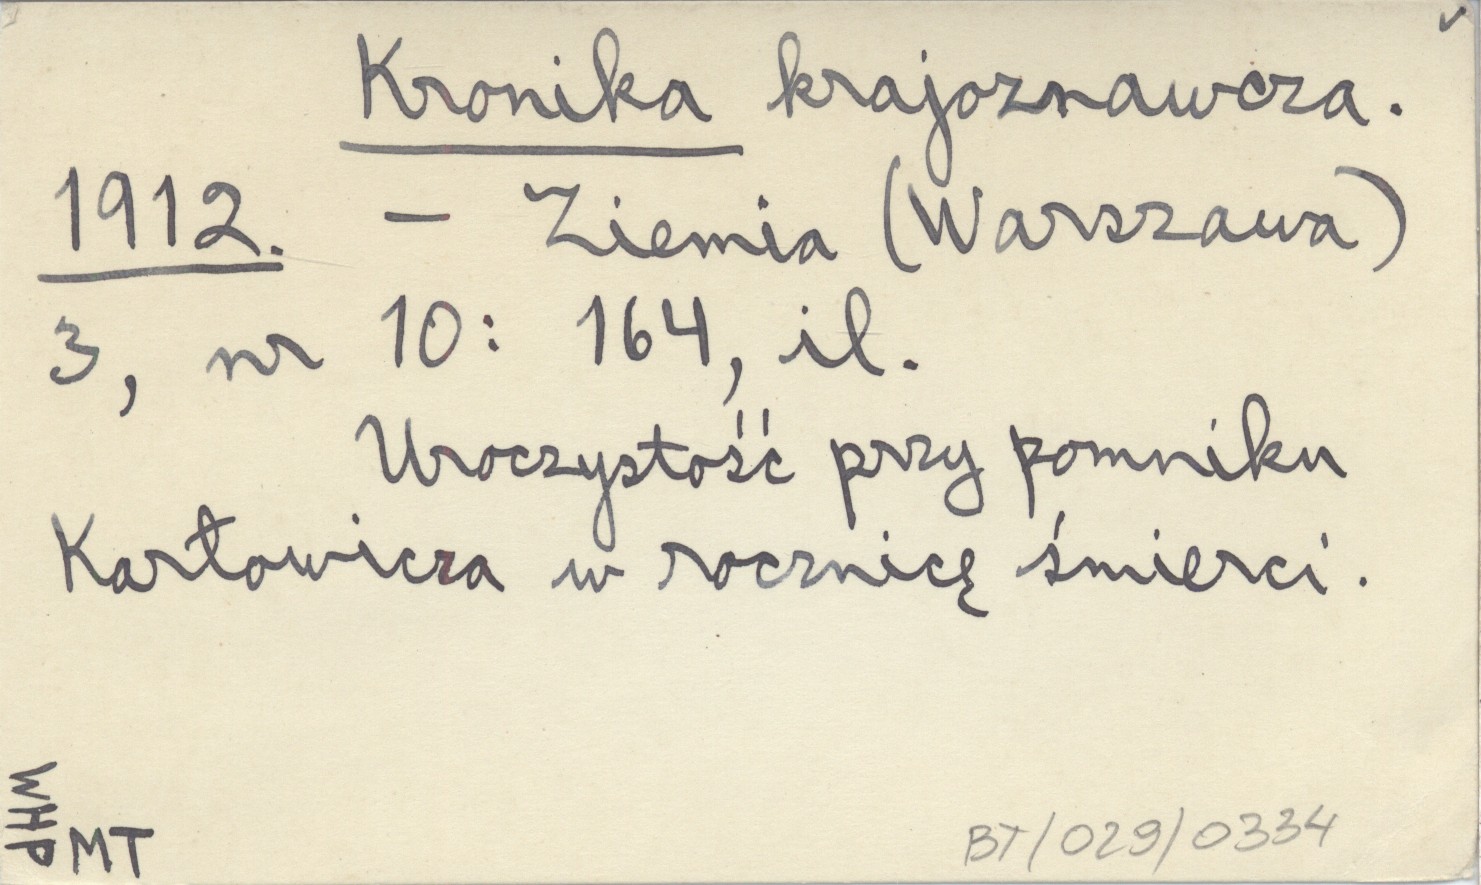 Kronika krajoznawcza.
1912. — Ziemia (Warszawa)
3, nr 10: 164, il.
Uroczystość przy pomniku
Karłowicza w rocznicę śmierci.
WHP
MT
BT/029/0334